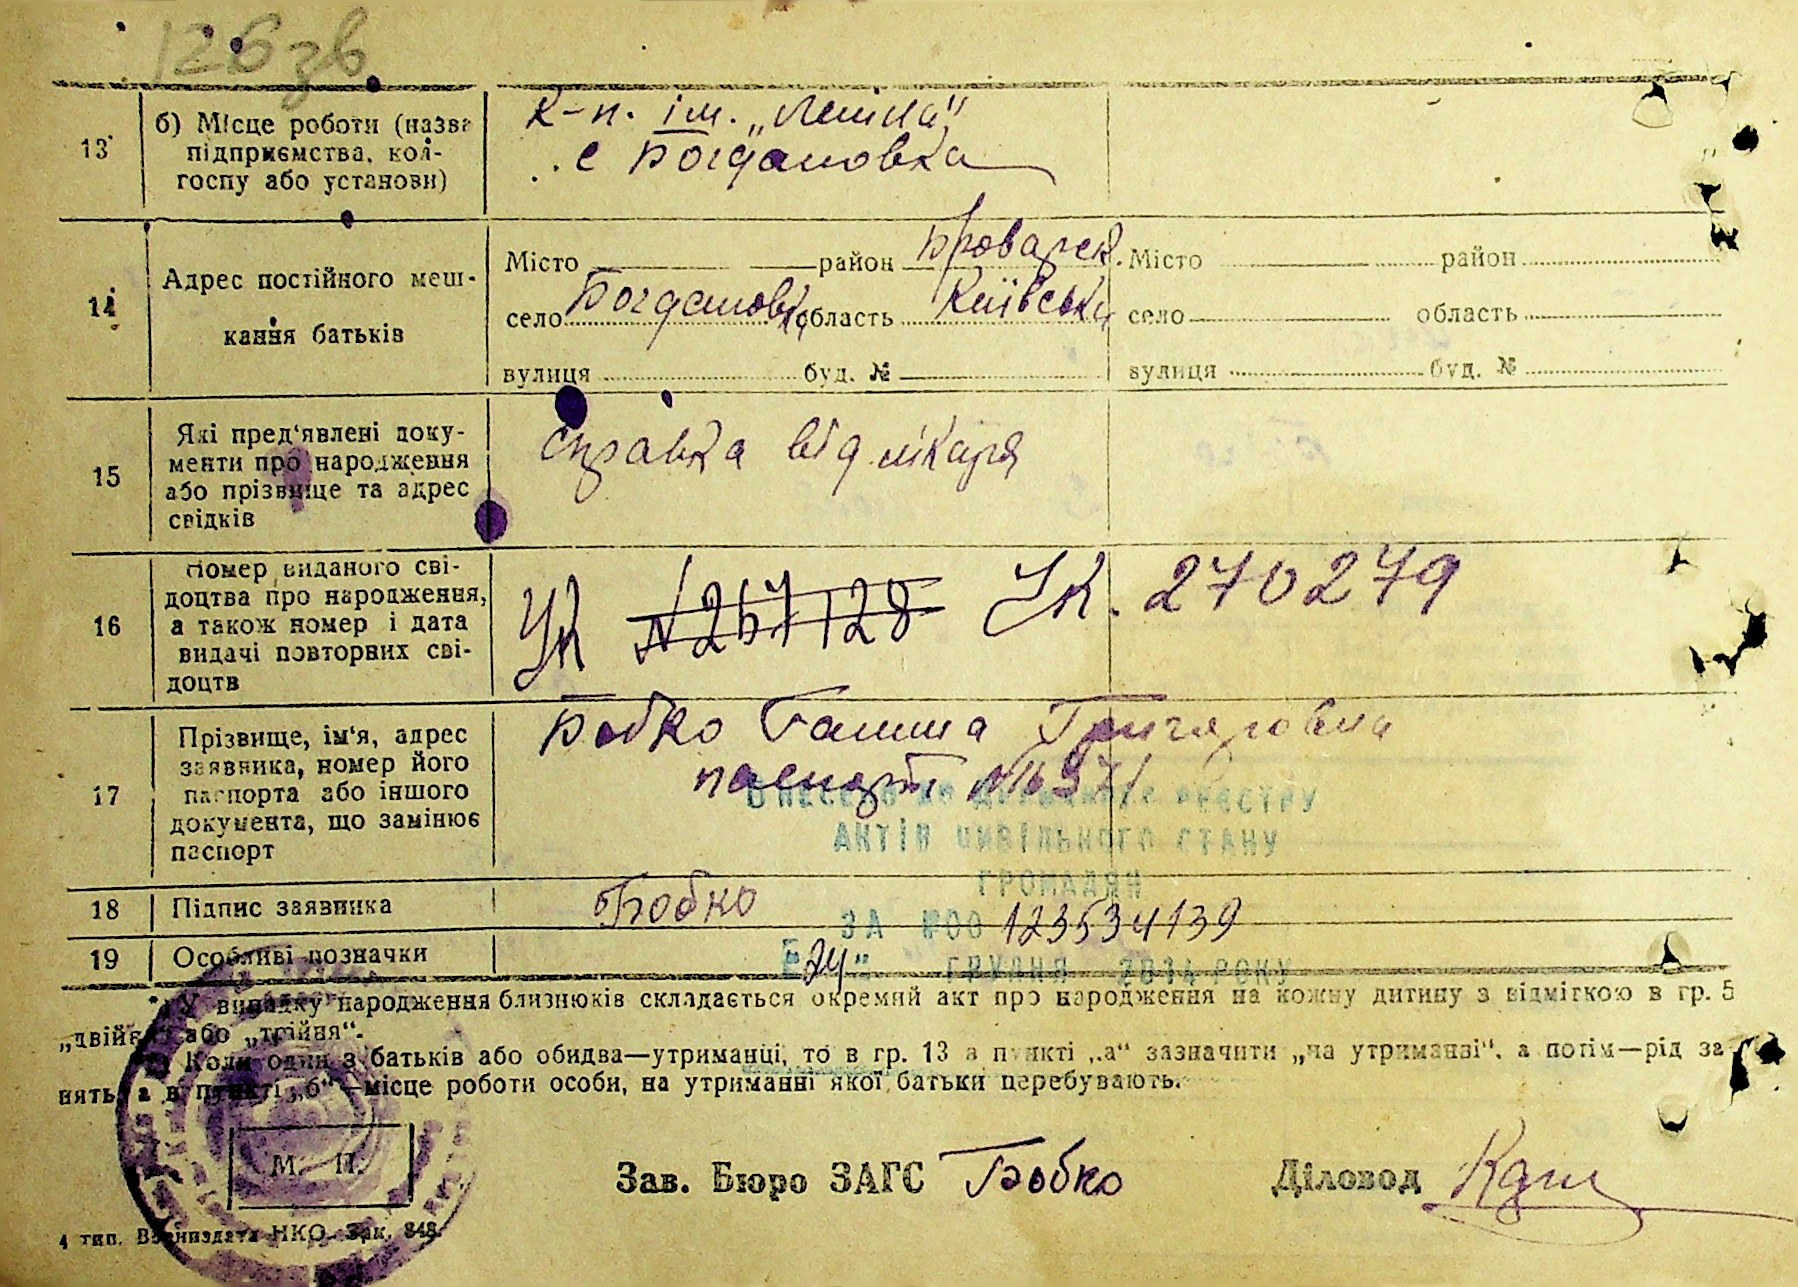 126 зв
13 б) Місце роботи (назва підприємства, колгоспу або установи)
к-п. ім. „Леніна"
с Богдановка
14 Адрес постійного мешкання батьків
Місто район Броварск. Місто район
село Богдановка область Київська село область
вулиця буд. № вулиця буд. №
15 Які пред'явлені документи про народження або прізвище та адрес свідків
справка від лікаря
16 Номер виданого свідоцтва про народження, а також номер і дата видачі повторних свідоцтв
УК N 267128 УК. 270279
17 Прізвище, ім'я, адрес заявника, номер його паспорта або іншого документа, що замінює паспорт
Бобко Галина Григоровна
паспорт
ВНЕСЕНО ДО ДЕРЖАВНОГО РЕЄСТРУ
АКТІВ ЦИВІЛЬНОГО СТАНУ
ГРОМАДЯН
18 Підпис заявника Бобко
ЗА №00 123534139
19 Особливі позначки
„24" ГРУДНЯ 2014 РОКУ
*) У випадку народження близнюків складається окремий акт про народження на кожну дитину з відміткою в гр. 5
„двійня" або „трійня".
Коли один з батьків або обидва—утриманці, то в гр. 13 в пункті „а" зазначити „на утриманні", а потім—рід за
нять, а в пункті „б"—місце роботи особи, на утриманні якої батьки перебувають.
М. П.
Зав. Бюро ЗАГС Бобко Діловод
4 тип. Воениздата НКО. Зак. 848.